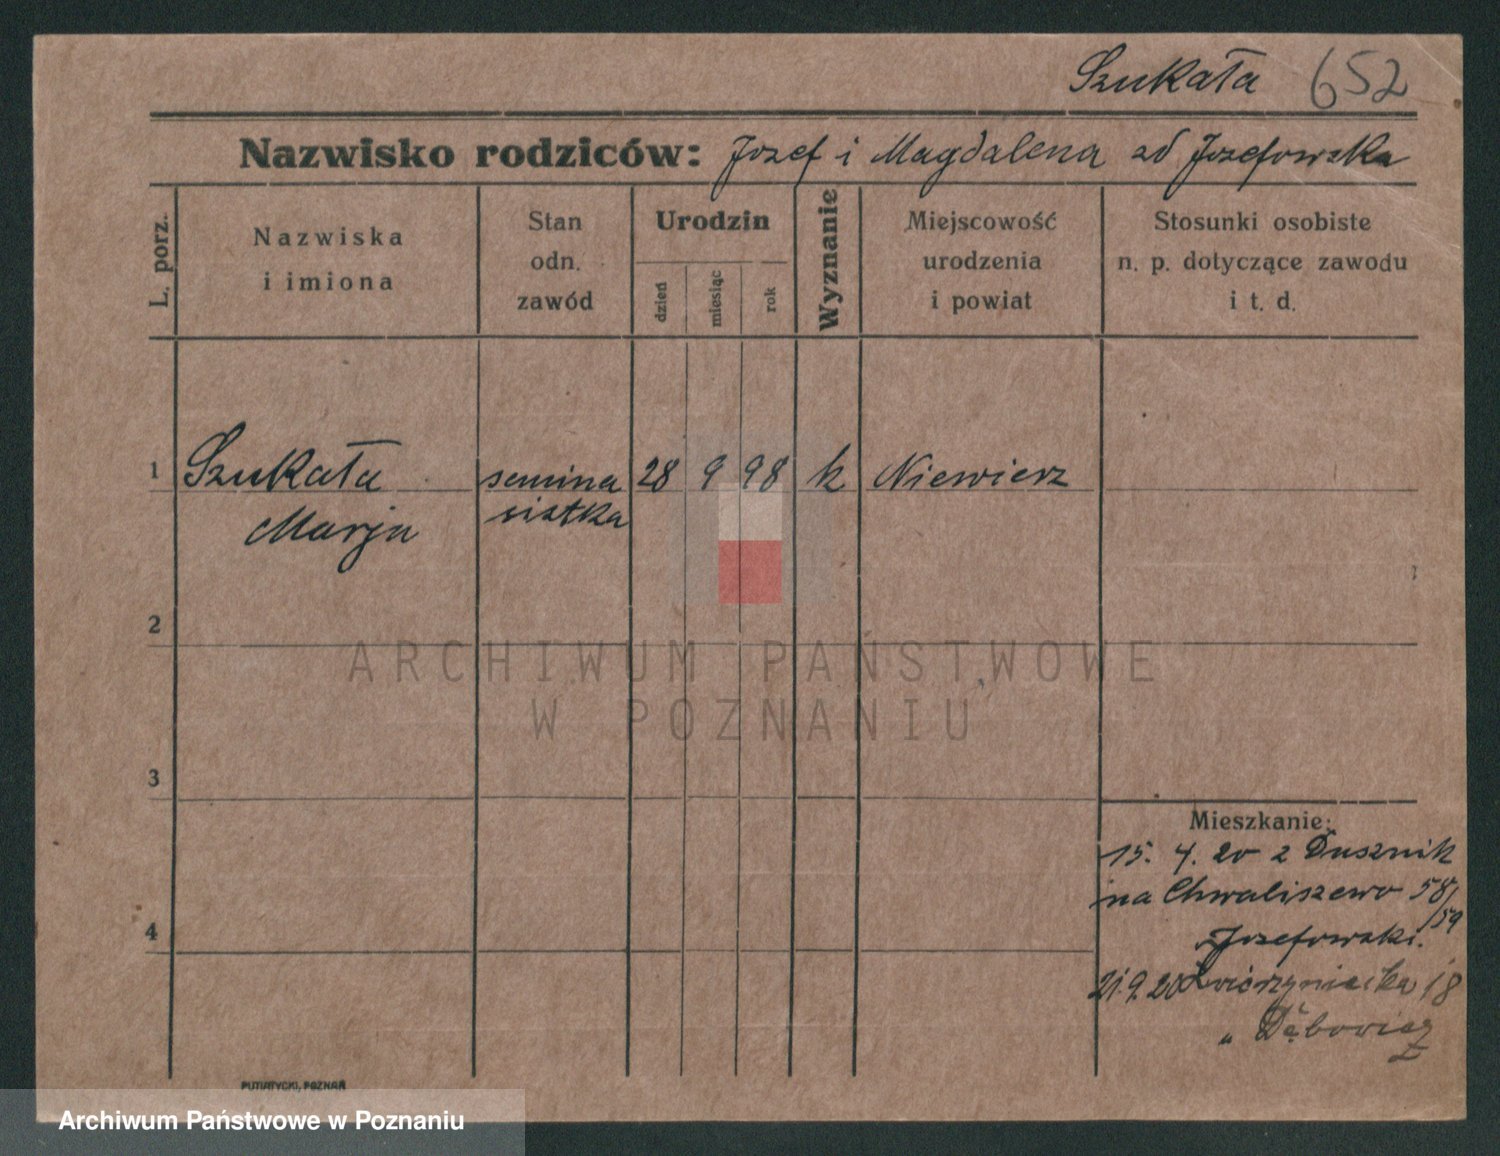 Szukała 652
Nazwisko rodziców: Jozef i Magdalena zd Jozefowska
L. porz.
Nazwiska
i imiona
Stan
odn.
zawód
Urodzin
dzień
miesiąc
rok
Wyznanie
Miejscowość
urodzenia
i powiat
Stosunki osobiste
n. p. dotyczące zawodu
i t. d.
1 Szukała semina 28 9 98 k Niewierz
Marja
2
ARCHIWUM PAŃSTWOWE
W POZNANIU
3
Mieszkanie:
15. 4. 20 z Dusznik
na Chwaliszewo 58/
59
4
Jozefowski.
21.9.20 Zwierzyniecka 18
" Dąbowicz
PUTIATYCKI, POZNAŃ
Archiwum Państwowe w Poznaniu